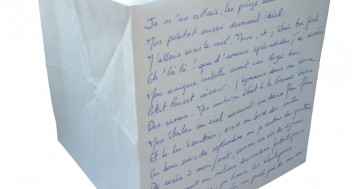 Je m'en allais, les poings
Mon paletot aussi devenait idéal
J'allais sous le ciel, Muse, et j'étais ton féal
Oh! là là! que d'amours splendides j'ai
Mon unique culotte avait un large trou
Petit Poucet rêveur, j'égrenais dans ma
Des rimes. Mon auberge était à la Grande Ourse
Mes étoiles au ciel avaient un doux frou-frou
Et je les écoutais, assis au bord des
Ces bons soirs de septembre où je sentais des gouttes
De rosée à mon front, comme un vin de
au milieu des ombres fantastiques
un pied près de mon